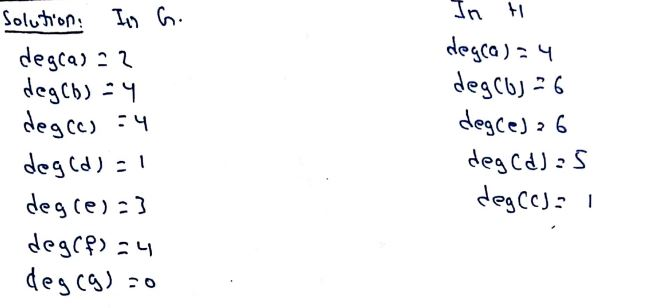 Solution: In G.
deg(a) = 2
deg(b) = 4
deg(c) = 4
deg(d) = 1
deg(e) = 3
deg(f) = 4
deg(g) = 0
In H
deg(a) = 4
deg(b) = 6
deg(e) = 6
deg(d) = 5
deg(c) = 1